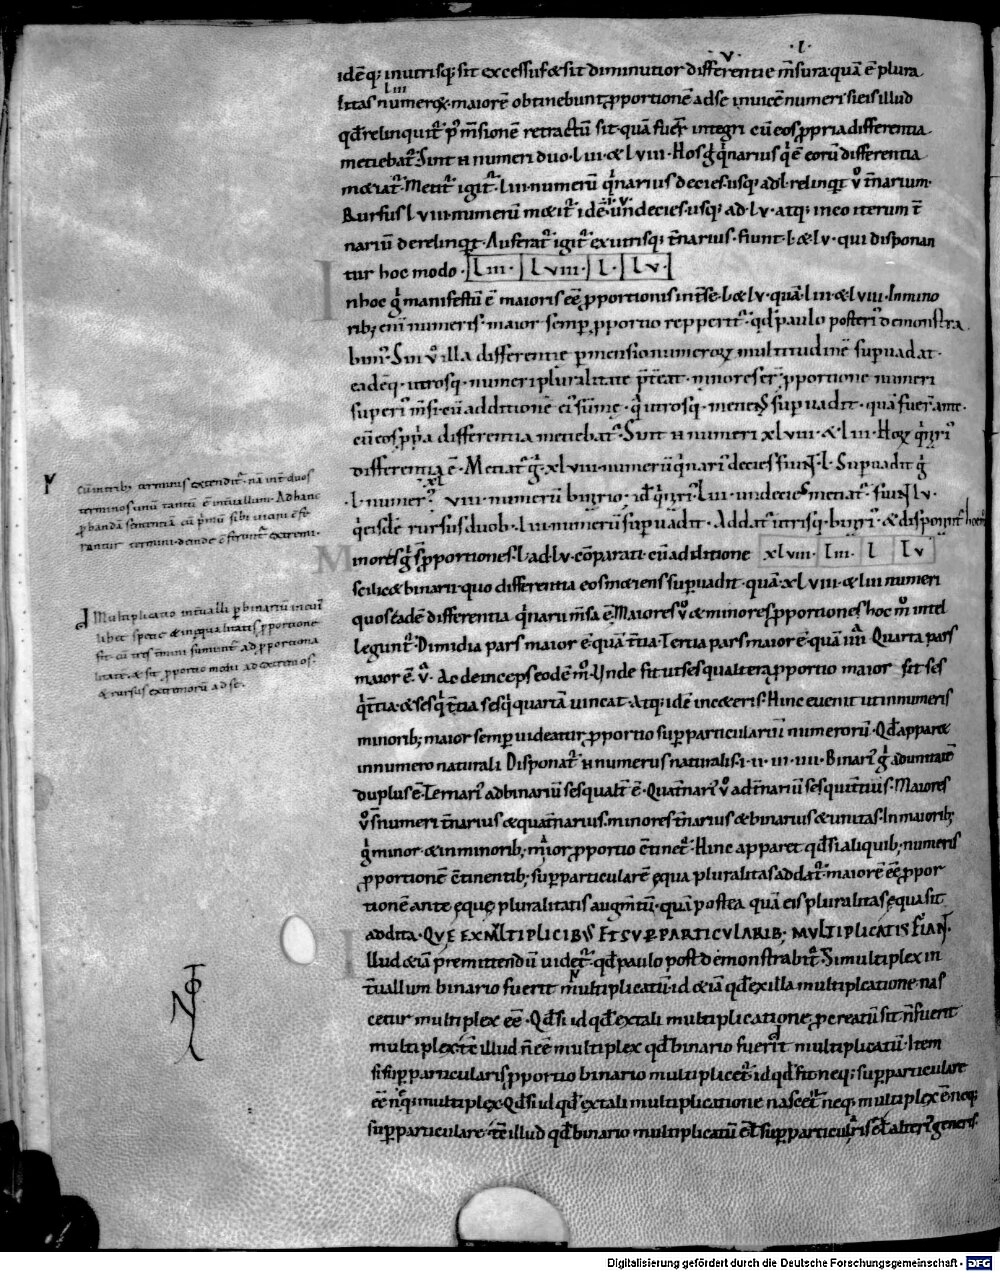 ·v· ·l·
idē q; in utrisq; sit excessus & sit diminutior differentie m̄sura quā ē plura
liii
litas numeroꝝ maiorē obtinebunt proportionē ad se inuicē numeri si eis illud
qd̄ relinquit᷑ p᷑ m̄sionē retractū sit quā fuer̄ integri cū eos propria differentia
metiebat᷑. Sunt n̄ numeri duo·liii·&·lviii·Hos g᷑ q᷑narius q᷑ ē eorū differentia
m&iat᷑. Metit᷑ igit᷑·liii·numerū q᷑narius decies usq; ad·l·relinq᷑t v̊ t̄narium·
Rursus lviii·numerū m&it᷑ idē undecies usq; ad·lv·atq; in eo iterum t̄
nariū derelinq᷑t. Auferat᷑ igit᷑ ex utrisq; t̄narius·fiunt·l·&·lv·qui disponan
tur hoc modo· liii· lviii· l· lv·
In hoc g᷑ manifestū ē maioris eē proportionis int̄ se·l·&·lv·quā·liii·&·lviii·In mino
rib; enim numeris·maior semp proportio repperit᷑·qd̄ paulo posteri᷑ demonstra
bim᷑. Sin v̊ illa differentie pmensio numeroꝝ multitudinē supuadat·
eadēq· utrosq· numeri pluralitate p̄t̄eat·minores er̄ proportione numeri
superi᷑ m̄si cū additionē ei᷑ sūme· q᷑ utrosq· metiens supuadit·quā fuer̄ ante·
cū eos pp̄a differentia metiebat᷑. Sint n̄ numeri xlviii·&·liii·Hoꝝ q᷑nari᷑
differentia ē· Metiat᷑ g᷑·xlviii·numerū q᷑nari᷑ decies fiunt·l·Supuadit g᷑
·l·numer᷑ xlviii·numerū binario·idē q᷑nari᷑·liii·undecies metiat᷑·fiunt lv·
q᷑ eisdē rursus duob·liii·numerū supuadit· Addat᷑ utrisq· binari᷑·& disponunt᷑ hoc m̊
Minores g᷑ s̄ proportiones·l·ad·lv·cōparati·cū additione xlviii· liii· l lv
scilic& binarii quo differentia eos m&iens supuadit·quā·xlviii·&·liii numeri
quos eadē differentia q᷑naria m̄sa ē. Maiores v̊ & minores proportiones hoc m̊ intel
legunt᷑. Dimidia pars maior ē quā t̄tia·Tertia pars maior ē·quā iiii·Quarta pars
maior ē·v· Ac deinceps eodē m̊. Unde fit ut sesqualtera proportio maior sit ses
q᷑t̄tia·& sesq᷑t̄tia sesq᷑quartā uincat·Atq; idē in c&eris·Hinc euenit ut in numeris
minorib; maior semp uideatur proportio supparticulariū numerorū·Qd̄ appar&
in numero naturali Disponat᷑ n̄ numerus naturalis·i·ii·iii·iiii·Binari᷑ g᷑ ad unitatē
duplus ē·Ternari᷑ ad binariū sesqualt̄ ē·Quat̄nari᷑ v̊ ad t̄nariū sesquit̄tius·Maiores
v̊ s̄ numeri t̄narius & quat̄narius·minores t̄narius & binarius & unitas·In maiorib;
g᷑ minor·& in minorib; maior proportio c̄tinet᷑·Hinc apparet qd̄ si aliquib; numeris
proportionē c̄tinentib; supparticularē ęqua pluralitas addat᷑·maiorē eē propor
tionē ante ęquę pluralitatis augm̄tū·quā postea quā eis pluralitas ęqua sit
addita·QVE EX MVLTIPLICIBVS ET SVPERPARTICVLARIB; MVLTIPLICATIS FIANT·
Illud &iā premittendū uidet᷑·qd̄ paulo post demonstrabit᷑·Si multiplex in
t̄uallum binario fuerit multiplicatū·id &iā qd̄ ex illa multiplicatione nas
cetur multiplex eē·Qd̄ si id qd̄ ex tali multiplicatione procreatū sit n̄ fuerit
multiplex·tc̄ illud n̄ eē multiplex qd̄ binario fuerit multiplicatū·Item
si supparticularis proportio binario multiplicet᷑·id qd̄ fit neq; supparticulare
eē neq; multiplex·Qd̄ si id qd̄ ex tali multiplicatione nascet᷑ neq; multiplex ē neq;
supparticulare·tc̄ illud qd̄ binario multiplicatū ē t̄ supparticularis ē t̄ alteri᷑ generis·
Cū in trib; terminis extendit᷑·nā int̄ duos
terminos unū tantū ē int̄uallum·Ad hanc
probandā sententiā cū primū sibi uiciniē fe
rantur termini·deinde ē ferunt᷑ extremi·
Multiplicatio int̄ualli p binariū in cui᷑
libet speciē & inęqualitatis proportione
fit cū tres t̄mini sumunt᷑ ad proportiona
litatē·& fit proportio medii ad extremos·
& rursus extremorū ad se·
Digitalisierung gefördert durch die Deutsche Forschungsgemeinschaft - DFG